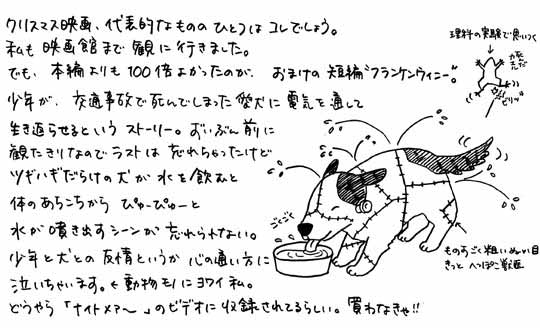 クリスマス映画、代表的なもののひとつはコレでしょう。
私も映画館まで観に行きました。
でも、本編よりも100倍よかったのが、おまけの短編"フランケンウィニー"。
少年が、交通事故で死んでしまった愛犬に電気を通して
生き返らせるというストーリー。ずいぶん前に
観たきりなのでラストは忘れちゃったけど
ツギハギだらけの犬が水を飲むと
体のあちこちから ぴゅーぴゅーと
水が噴き出すシーンが忘れられない。
少年と犬との友情というか心の通い方に
泣いちゃいます。←動物モノにヨワイ私。
どうやら「ナイトメアー〜」のビデオに収録されてるらしい。買わなきゃ!!
理科の実験で思いつく
死んだ
カエル
ビリッ
ごくごく
ものすごく粗いぬい目
きっとへっぽこ獣医